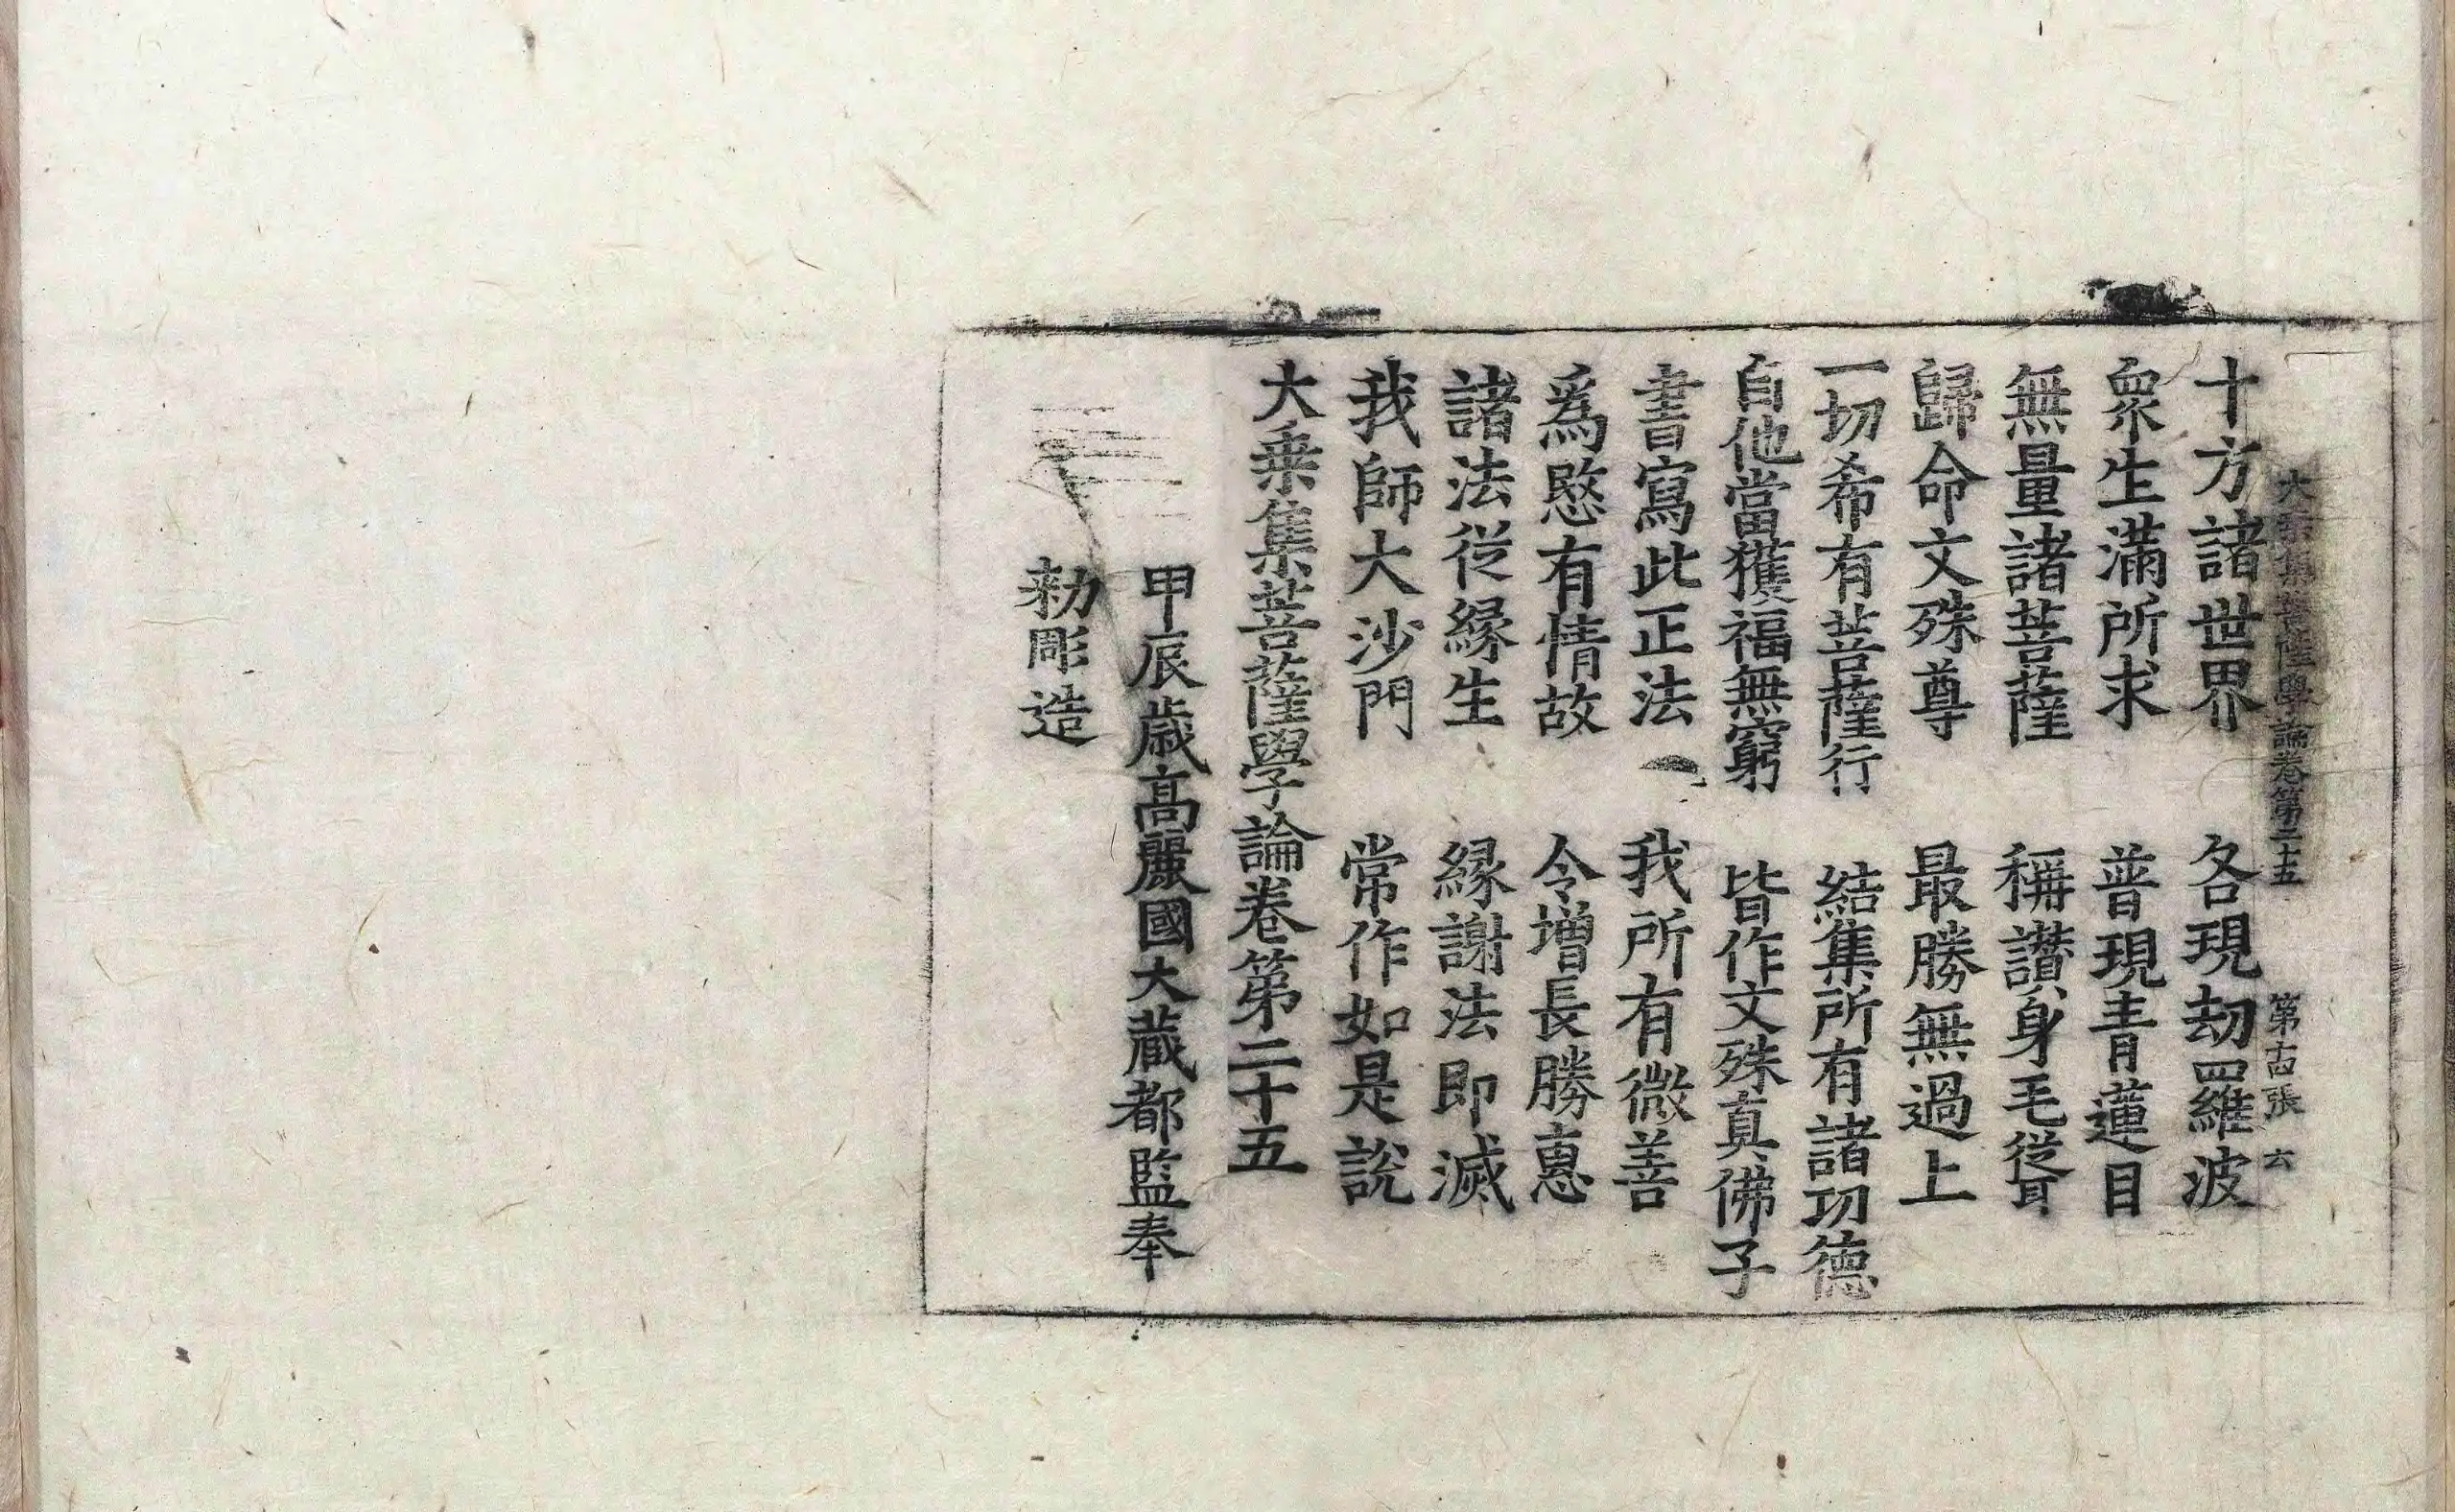 大乗集菩薩學論卷第二十五 第古張 六
十方諸世界 各現劫羅波
衆生滿所求 普現青蓮目
無量諸菩薩 稱讃身毛竪
歸命文殊尊 最勝無過上
一切希有菩薩行 結集所有諸功德
自他當獲福無窮 皆作文殊真佛子
書寫此正法 我所有微善
爲愍有情故 令增長勝惠
諸法從緣生 緣謝法即滅
我師大沙門 常作如是說
大乗集菩薩學論卷第二十五
甲辰歳高麗國大藏都監奉
勑彫造